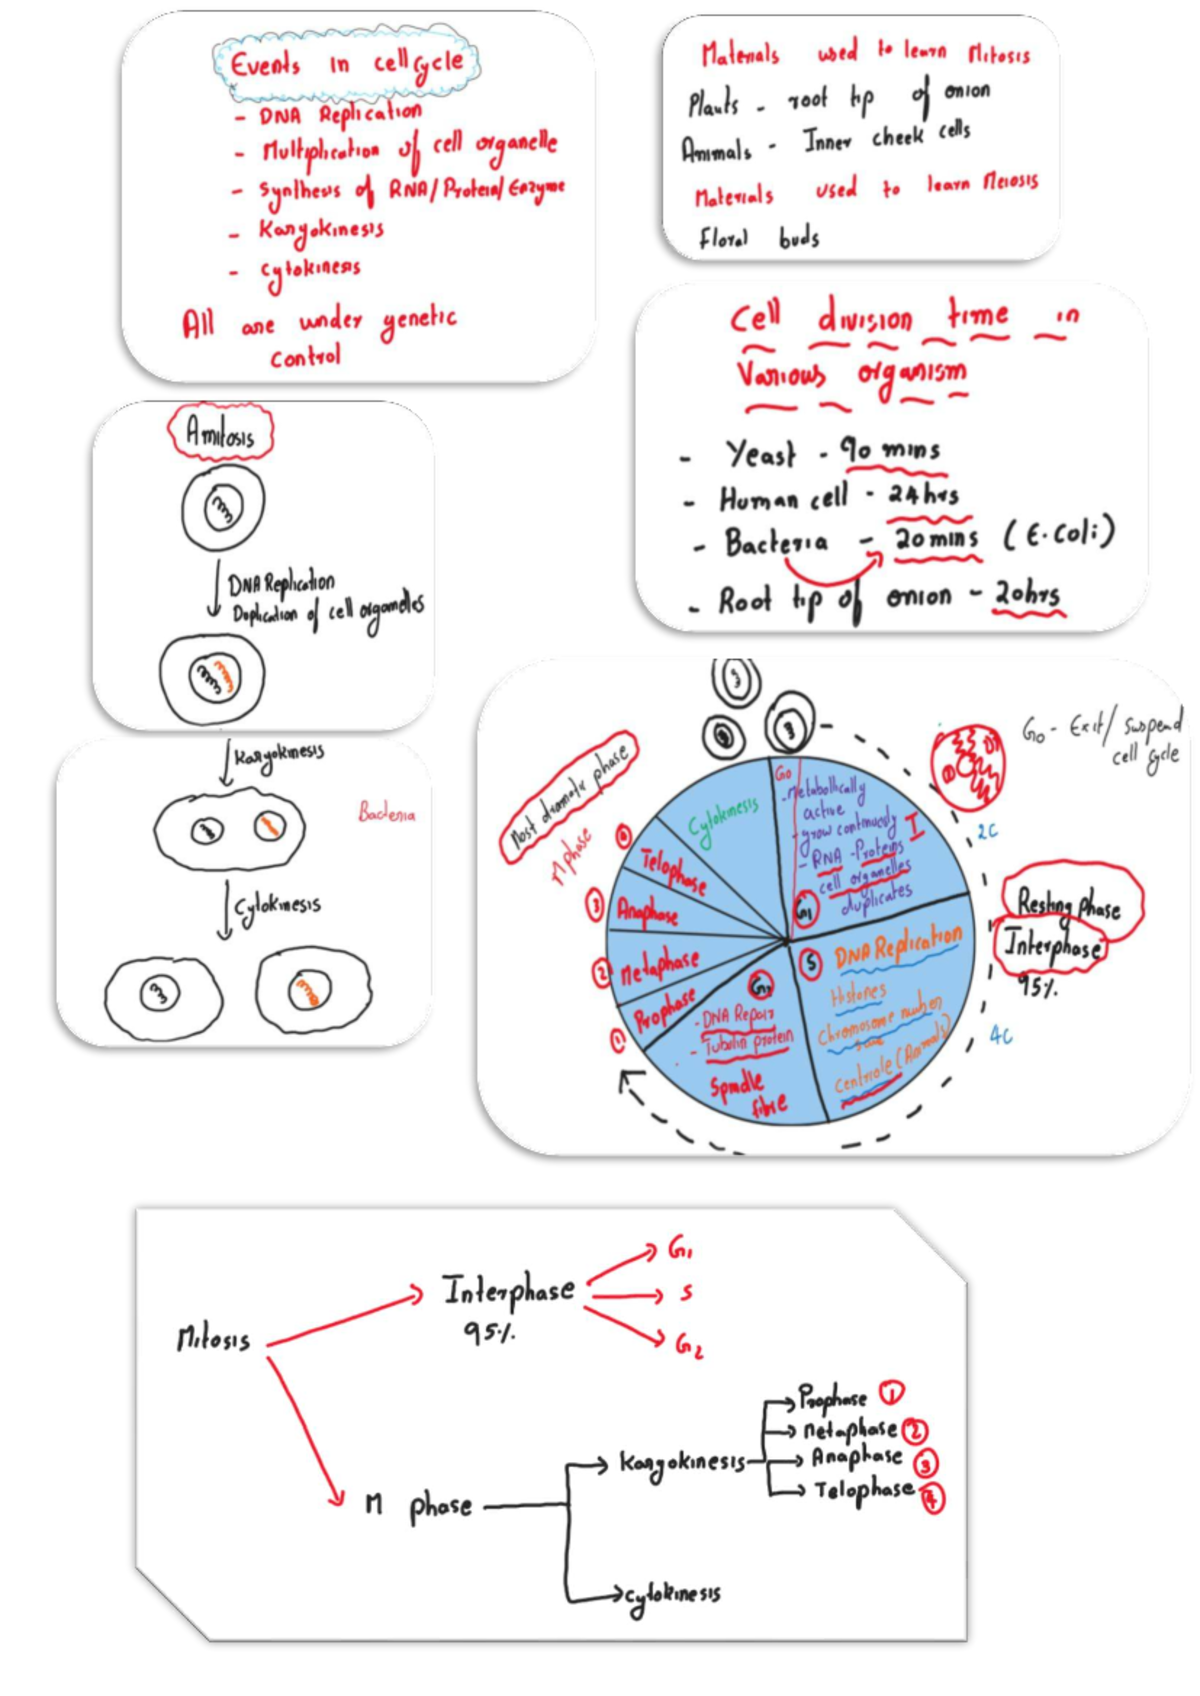 Events in cell cycle
- DNA Replication
- Multiplication of cell organelle
- Synthesis of RNA/Protein/Enzyme
- Karyokinesis
- cytokinesis
All are under genetic
control
Materials used to learn Mitosis
Plants - root tip of onion
Animals - Inner cheek cells
Materials used to learn Meiosis
Floral buds
Cell division time in
Various organism
- Yeast - 90 mins
- Human cell - 24hrs
- Bacteria - 20mins (E.Coli)
- Root tip of onion - 20hrs
Amitosis
DNA Replication
Duplication of cell organelles
Karyokinesis
Bacteria
Cytokinesis
G0 - Exit/suspend
cell cycle
Most dramatic phase
M phase
Cytokinesis
G0
- Metabolically
active
- grow continuously
- RNA - Proteins
cell organelles
duplicates
I
G1
2C
4 Telophase
3 Anaphase
2 Metaphase
1 Prophase
Resting phase
Interphase
95%
S DNA Replication
Histones
Chromosome number
same
Centriole (Animals)
4C
G2
- DNA Repair
- Tubulin protein
Spindle
fibre
Mitosis
Interphase
95%
G1
S
G2
M phase
Karyokinesis
Prophase 1
Metaphase 2
Anaphase 3
Telophase 4
cytokinesis